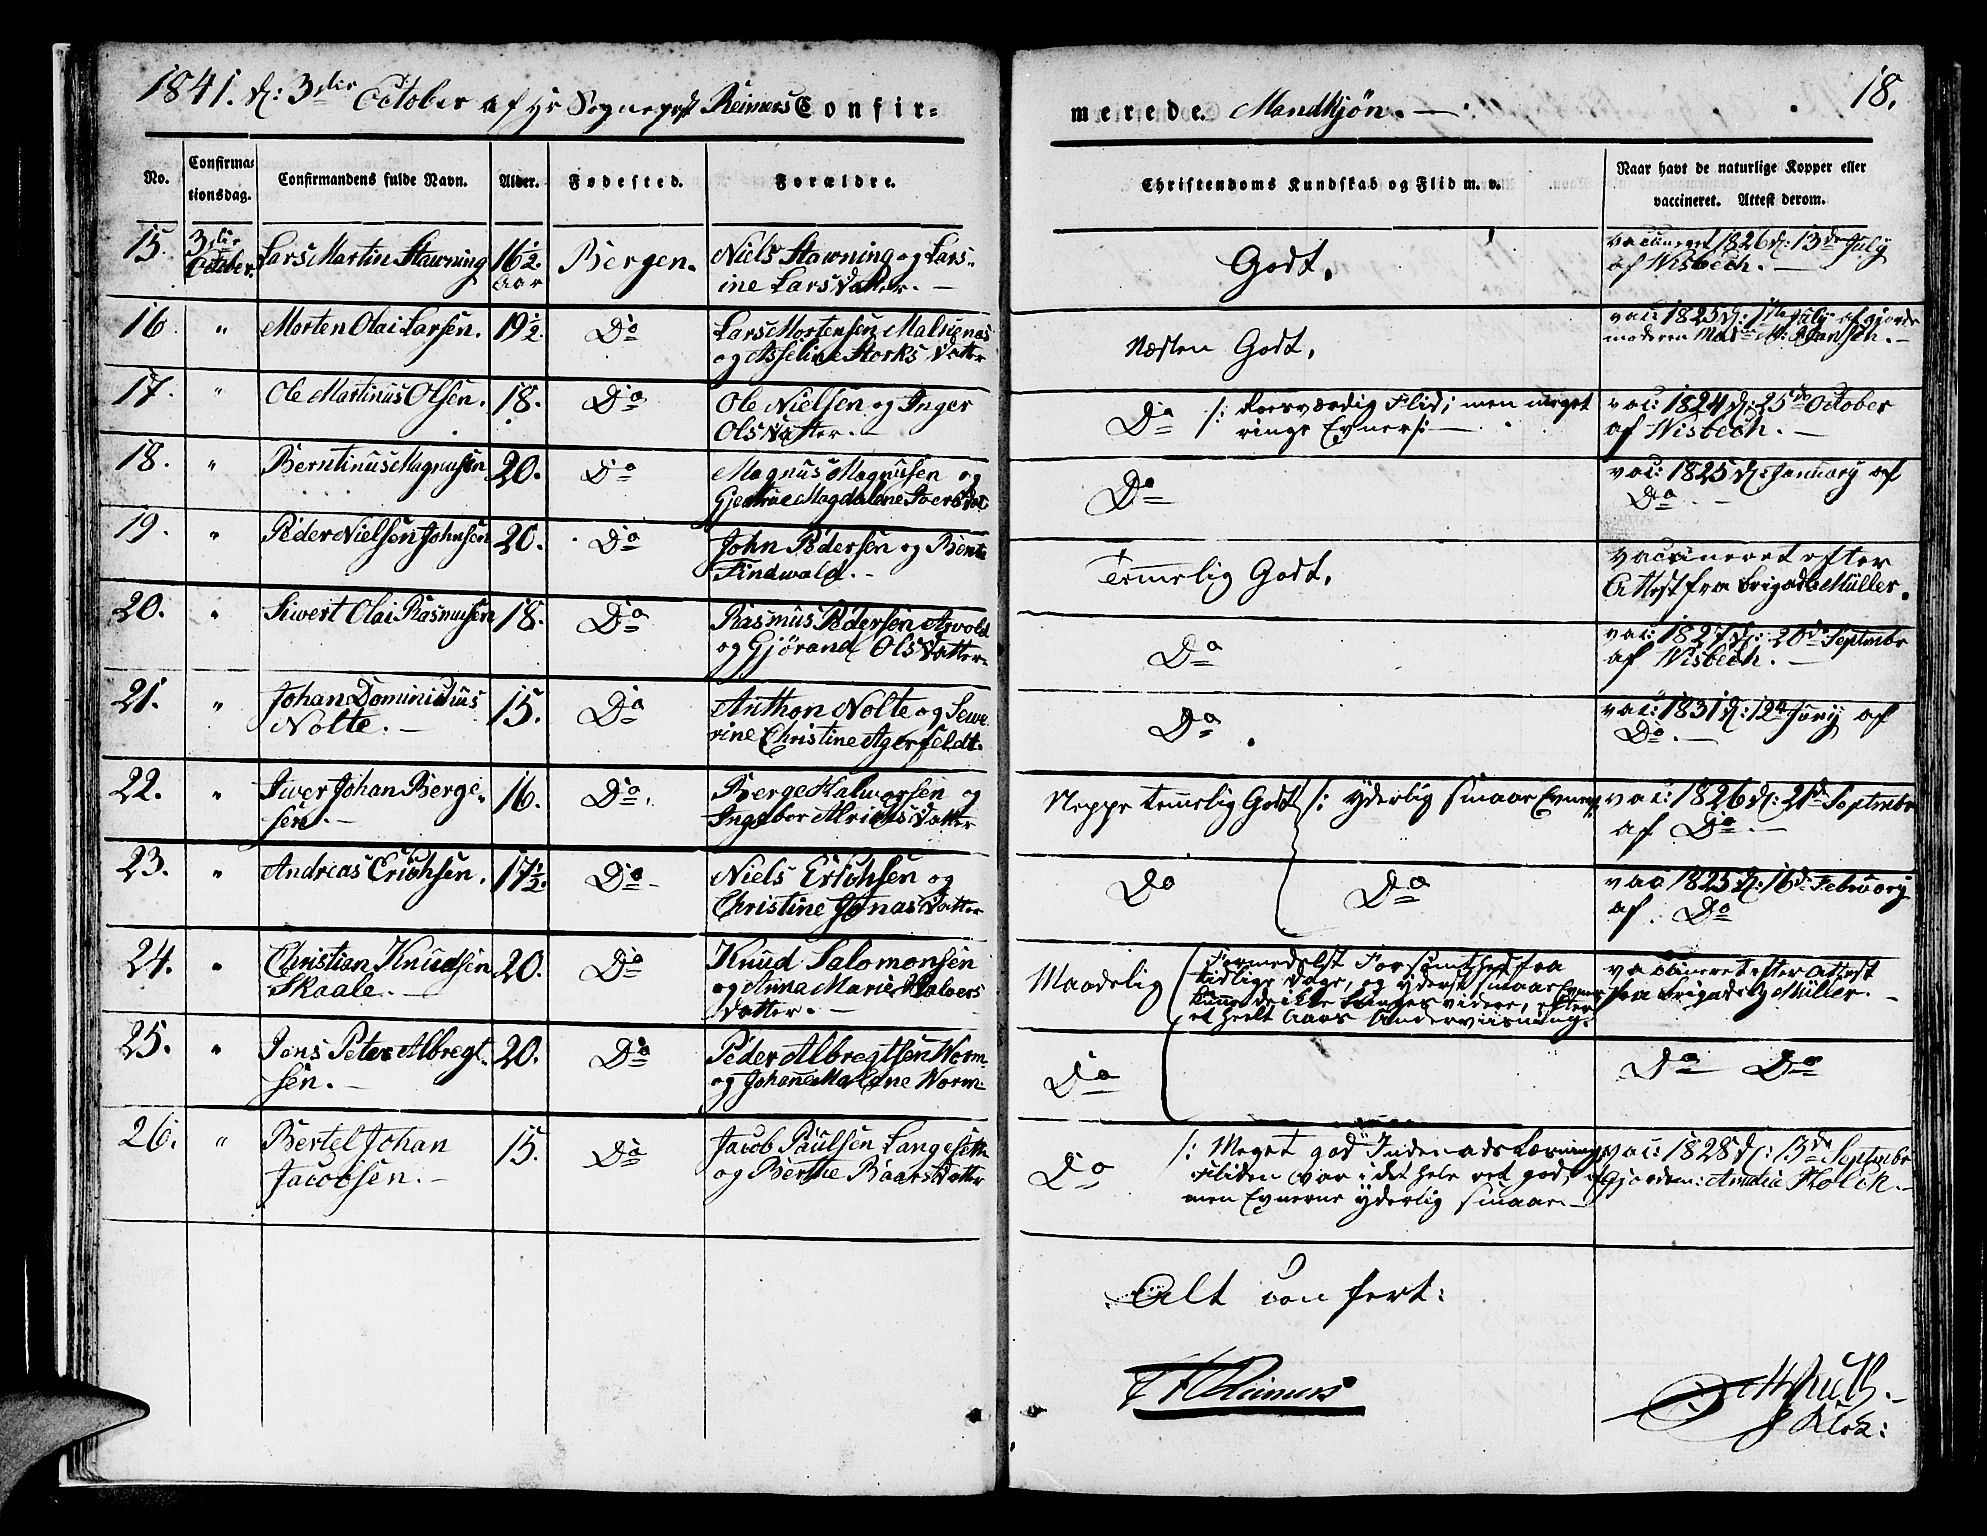 1841. d: 3die October af Hr Sognepræst Reimers Confir=
merede. Mandkjøn. 18.
No. Confirma= tionsdag. Confirmandens fulde Navn. Alder. Fødested. Forældre. Christendoms Kundskab og Flid m. v. Naar havt de naturlige Kopper eller
vaccineret. Attest derom.
15. 3die October. Lars Martin Stawning 16½ Aar Bergen. Niels Stawning og Lars=
ine Larsdatter. Godt. vaccineret 1826 d: 13de July
af Wisbech.
16 " Morten Olai Larsen. 19½. Do Lars Mortensen
og Asseline Storks datter Næsten Godt. vac: 1825 d: July af Gjorde
moderen Jansen.
17. " Ole Martinus Olsen. 18. Do Ole Nielsen og Inger
Olsdatter. Do /: Roesværdig Flid; men meget
ringe Evner :/ vac: 1824 d: 25de October
af Wisbech.
18. " Berntinus Magnusen 20. Do Magnus Magnusen og
Magdalene Do vac: 1825 d: January af
Do
19. " Peder Nielsen Johnsen 20. Do John Pedersen og Bente
Findwald. Temmelig Godt. vaccineret efter
Attest fra Brigadelæge Müller.
20. " Siwert Olai Rasmusen 18. Do Rasmus Pedersen Arvold
og Gjørand Olsdatter. Do vac: 1827 d: 20de Septembr
af Wisbech.
21. " Johan Dominicus
Nolte. 15. Do Anthon Nolte og Sewe
rine Christine Agerfeldt. Do vac: 1831 d: 12te July af
Do.
22. " Iwer Johan Berge=
sen. 16. Do. Berge Halworsen og
Ingebor Alrichsdatter Neppe temmelig Godt /: yderlig smaae Evner vac: 1826 d: 21de Septembr
af Do.
23. " Andreas Erichsen. 17½. Do Niels Erichsen og
Christine Jonasdatter Do Do vac 1825 d: 16de February
af Do
24. " Christian Knudsen
Skaale. 20. Do Knud Salomonsen
og Anna Marie Halvers
datter. Maadelig Formedelst Forsømthed fra
tidlige Dage, og yderst smaae Evner
kunde de ikke bringes videre, efter
et heelt Aars Underviisning. vaccineret efter Attest
fra Brigadelæge Müller.
25. " Jens Peter Albregt
sen. 20. Do Peder Albregtsen Worm
og Johanne Malene Worm. Do Do Do
26. " Bertel Johan
Jacobsen. 15. Do Jacob Paulsen Langesetter
og Berthe Baarsdatter Do /: Meget god Indenadslæsning,
Fliden var i det hele ret god,
men Evnerne yderlig smaae. vac: 1828 d: 13de Septembr
af Gjordem: Amalia Holck.
Alt confert:
Reimers
Klok: